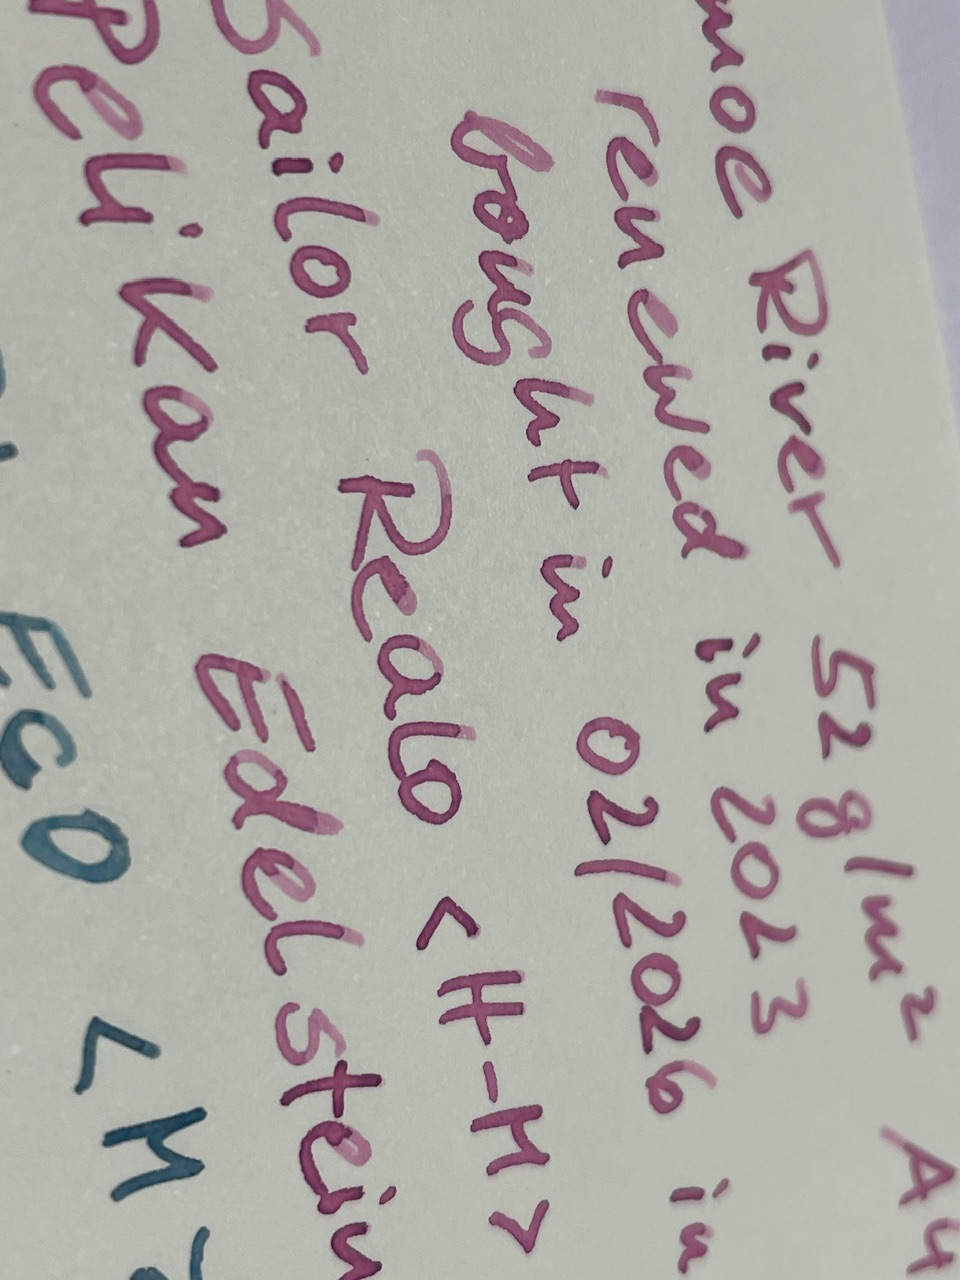 moe River 52g/m² A4
renewed in 2023
bought in 02/2026 in
Sailor Realo <H-M>
Pelikan Edelstein
ECO <M>